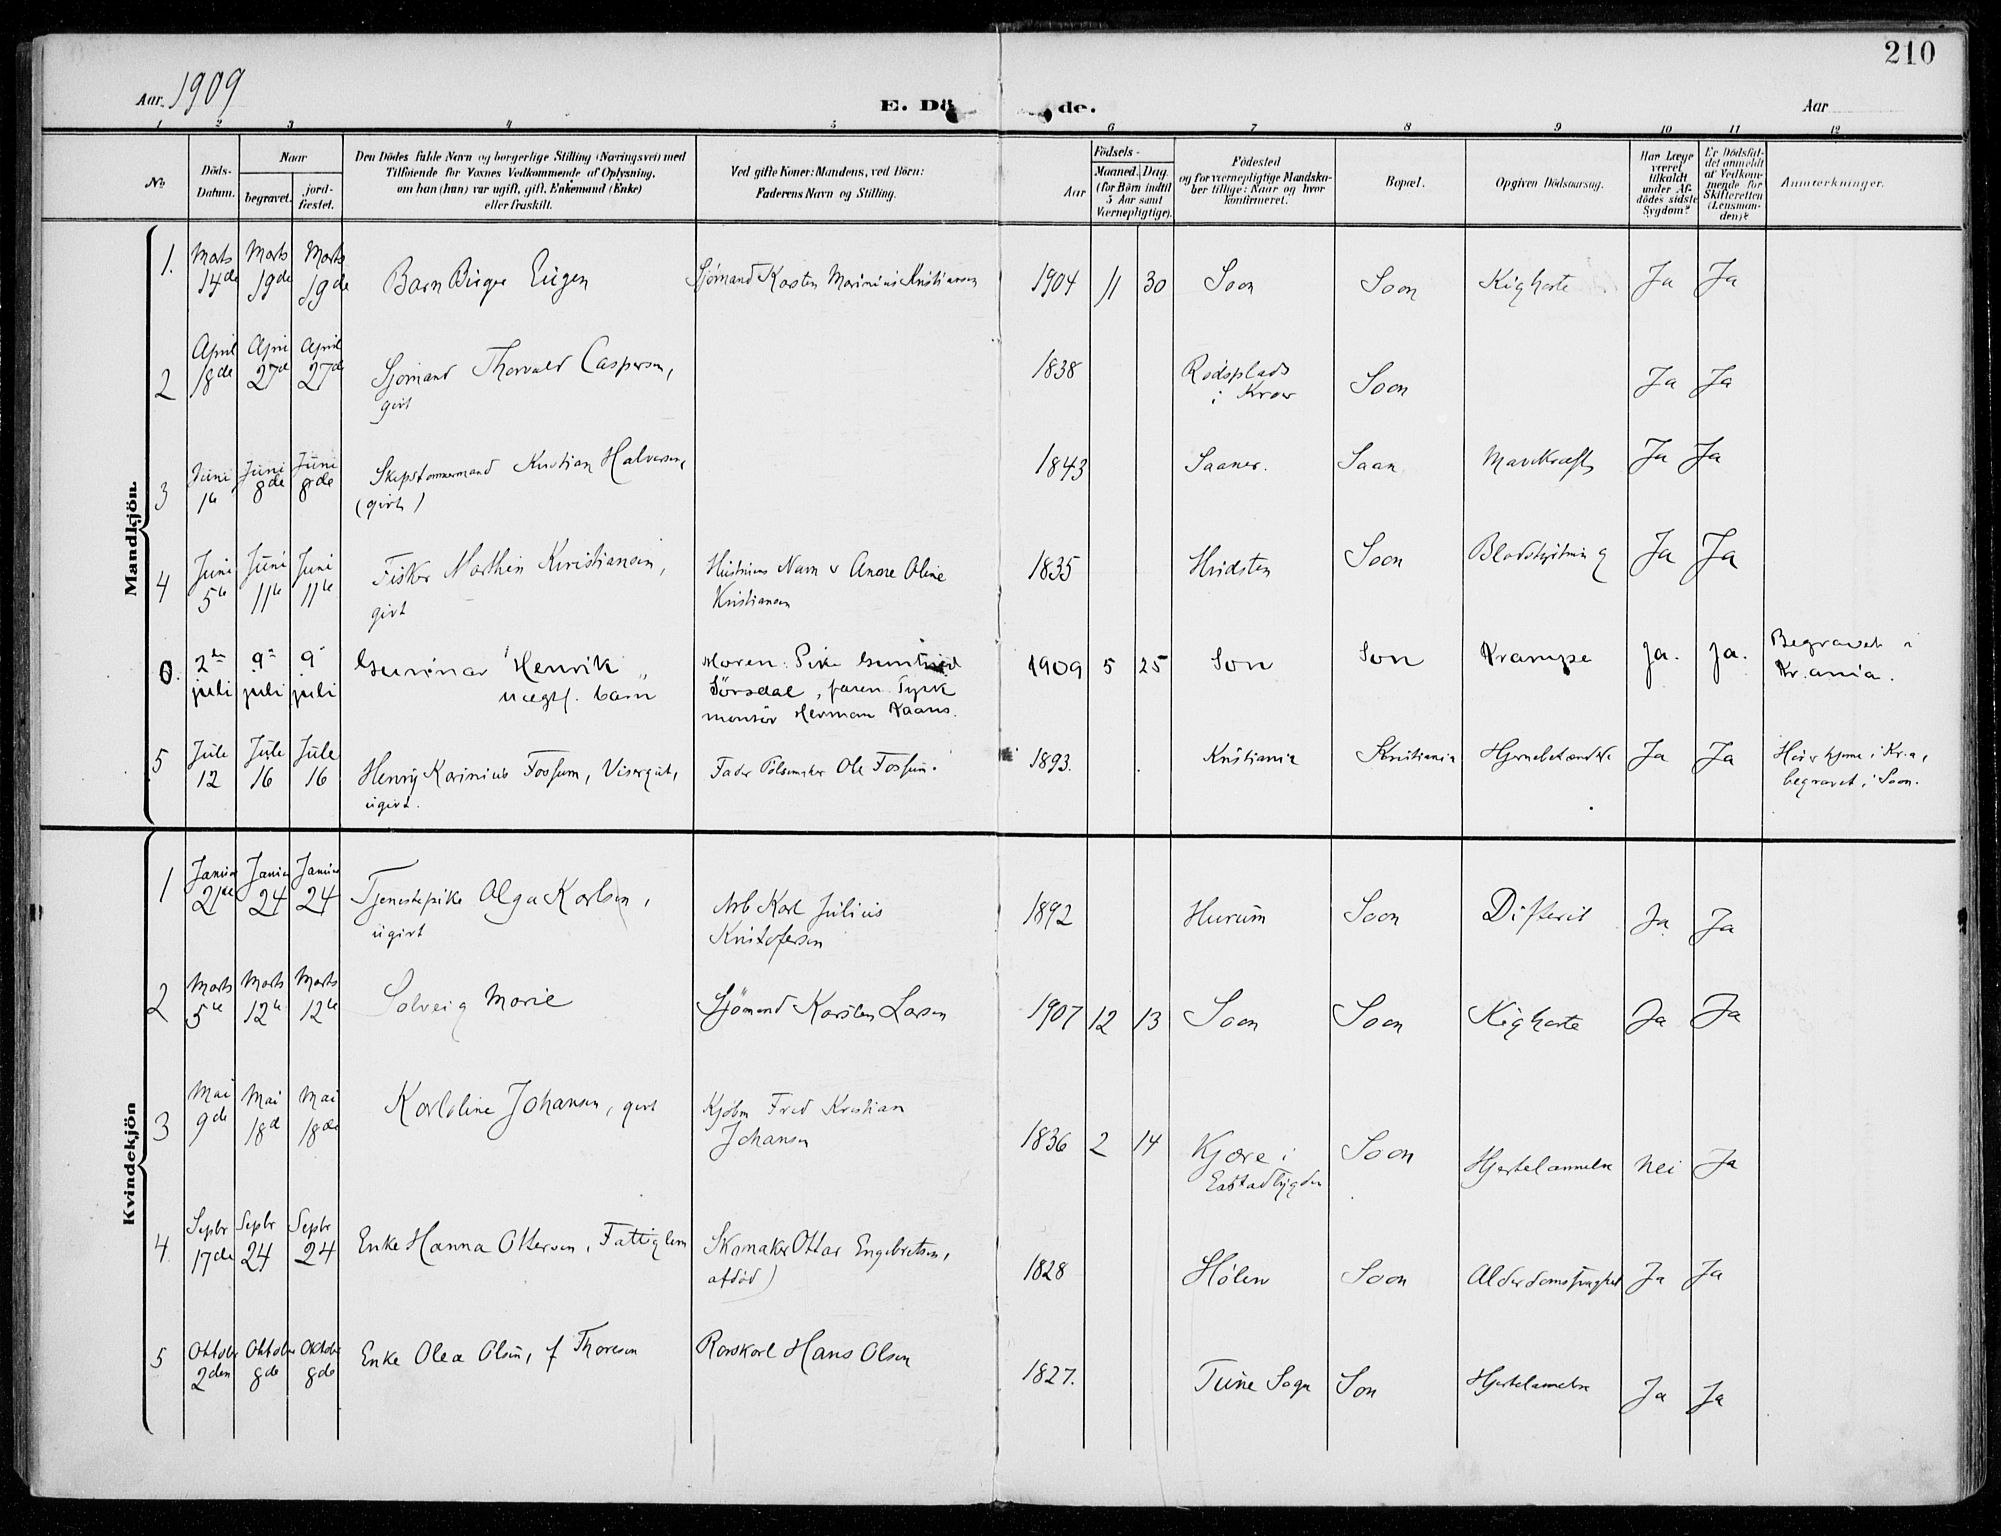 210
Aar 1909
E. Dö de.
Aar
1 2 3 4 5 6 7 8 9 10 11 12
No
Döds-
Datum.
Naar
begravet.
jord-
fæstet.
Den Dödes fulde Navn og borgerlige Stilling (Næringsvei) med
Tilföiende for Voxnes Vedkommende af Oplysning,
om han (hun) var ugift, gift, Enkemand (Enke)
eller fraskilt.
Ved gifte Koner: Mandens, ved Börn:
Faderens Navn og Stilling.
Födsels-
Aar
Maaned. Dag.
(for Börn indtil
5 Aar samt
Værnepligtige).
Födested
og for værnepligtige Mandska-
ber tillige: Naar og hvor
konfirmeret.
Bopæl.
Opgiven Dödsaarsag.
Har Læge
været
tilkaldt
under Af-
dödes sidste
Sygdom?
Er Dödsfal-
det anmeldt
af Vedkom-
mende for
Skifteretten
(Lensman-
den)?
Anmærkninger.
Mandkjön.
1. Marts 14de Marts 19de Marts 19de Barn Birger Eugen Sjömand Karsten Marinius Kristiansen 1904 11 30 Soon Soon Kighoste Ja Ja
2 April 18de April 27d April 27de Sjömand Thorvald Caspersen,
givt
1838 Rödsplads
i Kroer
Soon Ja Ja
3 Juni 1te Juni 8de Juni 8de Skipstömmermand Kristian Halvorsen,
(givt)
1843 Saaner. Saan Mavekræft Ja Ja
4 Juni 5te Juni 11te Juni 11te Fisker Mathin Kristiansen,
givt
Hustruens Navn v Anne Oline
Kristiansen
1835 Hvidsten Soon Blodstyrtning Ja Ja
0. 2den juli 9 juli 9 juli Gunnar Henrik
uægtf. barn
Moren: Pike
Sörsdal, faren: Tysk
montör Herman
1909 5 25 Son Son Krampe Ja. Ja. Begravet i
Kr.ania.
5 Jule 12 Jule 16 Jule 16 Henry Karinius Fossum, Visergut,
ugivt.
Fader Pölsemaker Ole Fossum.
1893. Kristiania Kristiania Hjernebetændelse Ja Ja Hörer hjeme i Kr.a,
begravet i Soon.
Kvindekjön
1 Januar 21de Januar 24 Januar 24 Tjenestepike Olga Karlsen,
ugivt
Arb Karl Julius
Kristofersen
1892 Hurum Soon Difterit Ja Ja
2 Marts 5te Marts 12te Marts 12te Solveig Marie Sjömand Karsten Larsen 1907 12 13 Soon Soon Kighoste Ja Ja
3 Mai 9de Mai 18d Mai 18de Karoline Johansen, givt Kjöbm Fred Kristian
Johansen
1836 2 14 Kjære i
Soon Hjertelammelse Nei Ja
4 Sepbr 17de Sepbr 24 Sepbr 24 Enke Hanna Ottersen, Fattiglem Skomaker Ottar Engebretsen,
afdöd)
1828 Hölen Soon Alderdomssvaghed Ja Ja
5 Oktober 2den Oktober 8de Oktober 8de Enke Olea Olsen, f Thoresen Rorskarl Hans Olsen 1827. Tune Sogn Son Hjertelamelse Ja Ja